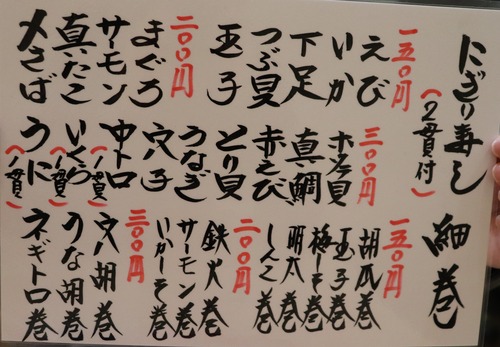 にぎり寿し
(2貫付)
一五〇円
えび
いか
下足
つぶ貝
玉子
二〇〇円
まぐろ
サーモン
真たこ
〆さば
三〇〇円
ホッキ貝
真鯛
赤えび
とり貝
うなぎ
穴子
中トロ(一貫)
いくら(一貫)
うに(一貫)
細巻
一五〇円
胡瓜巻
玉子巻
梅しそ巻
明太巻
しんこ巻
二〇〇円
鉄火巻
サーモン巻
いかしそ巻
三〇〇円
穴胡巻
うな胡巻
ネギトロ巻